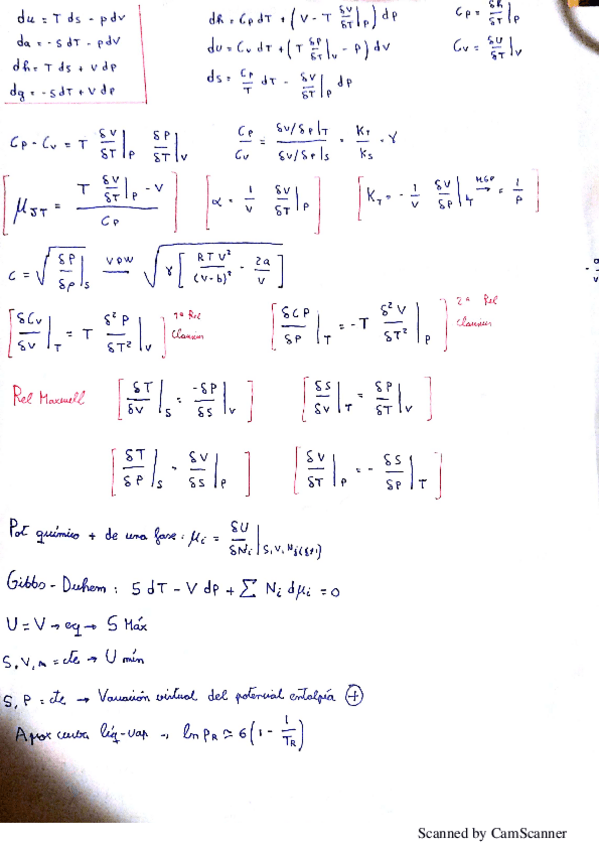 du = T ds - p dv
da = -s dT - p dv
dh = T ds + v dp
dg = -s dT + v dp
dh = Cp dT + (V - T δV/δT|p) dp
du = Cv dT + (T δP/δT|v - P) dv
ds = Cp/T dT - δV/δT|p dp
Cp = δh/δT|p
Cv = δU/δT|v
Cp - Cv = T δV/δT|p δP/δT|v
Cp/Cv = δV/δP|T / δV/δP|S = KT/KS = γ
[μJT = (T δV/δT|p - V) / Cp]
[α = 1/V δV/δT|p]
[KT = - 1/V δV/δP|T MGP→ = 1/P]
c = √(δP/δρ|s) VDW→ √(γ[RTV²/(V-b)² - 2a/V])
[δCv/δV|T = T δ²P/δT²|v] 1ª Rel Clausius
[δCP/δP|T = -T δ²V/δT²|p] 2ª Rel Clausius
Rel Maxwell [δT/δV|s = -δP/δS|v] [δS/δV|T = δP/δT|v]
[δT/δP|s = δV/δS|p] [δV/δT|p = - δS/δP|T]
Pot químico + de una fase: μi = δU/δNi|S,V,Nj(j≠i)
Gibbs-Duhem: S dT - V dp + Σ Ni dμi = 0
U = V → eq → S Máx
S, V, n = cte → U mín
S, P = cte → Variación virtual del potencial entalpía (+)
Aprox curba líq-vap → ln PR ≃ 6(1 - 1/TR)
Scanned by CamScanner